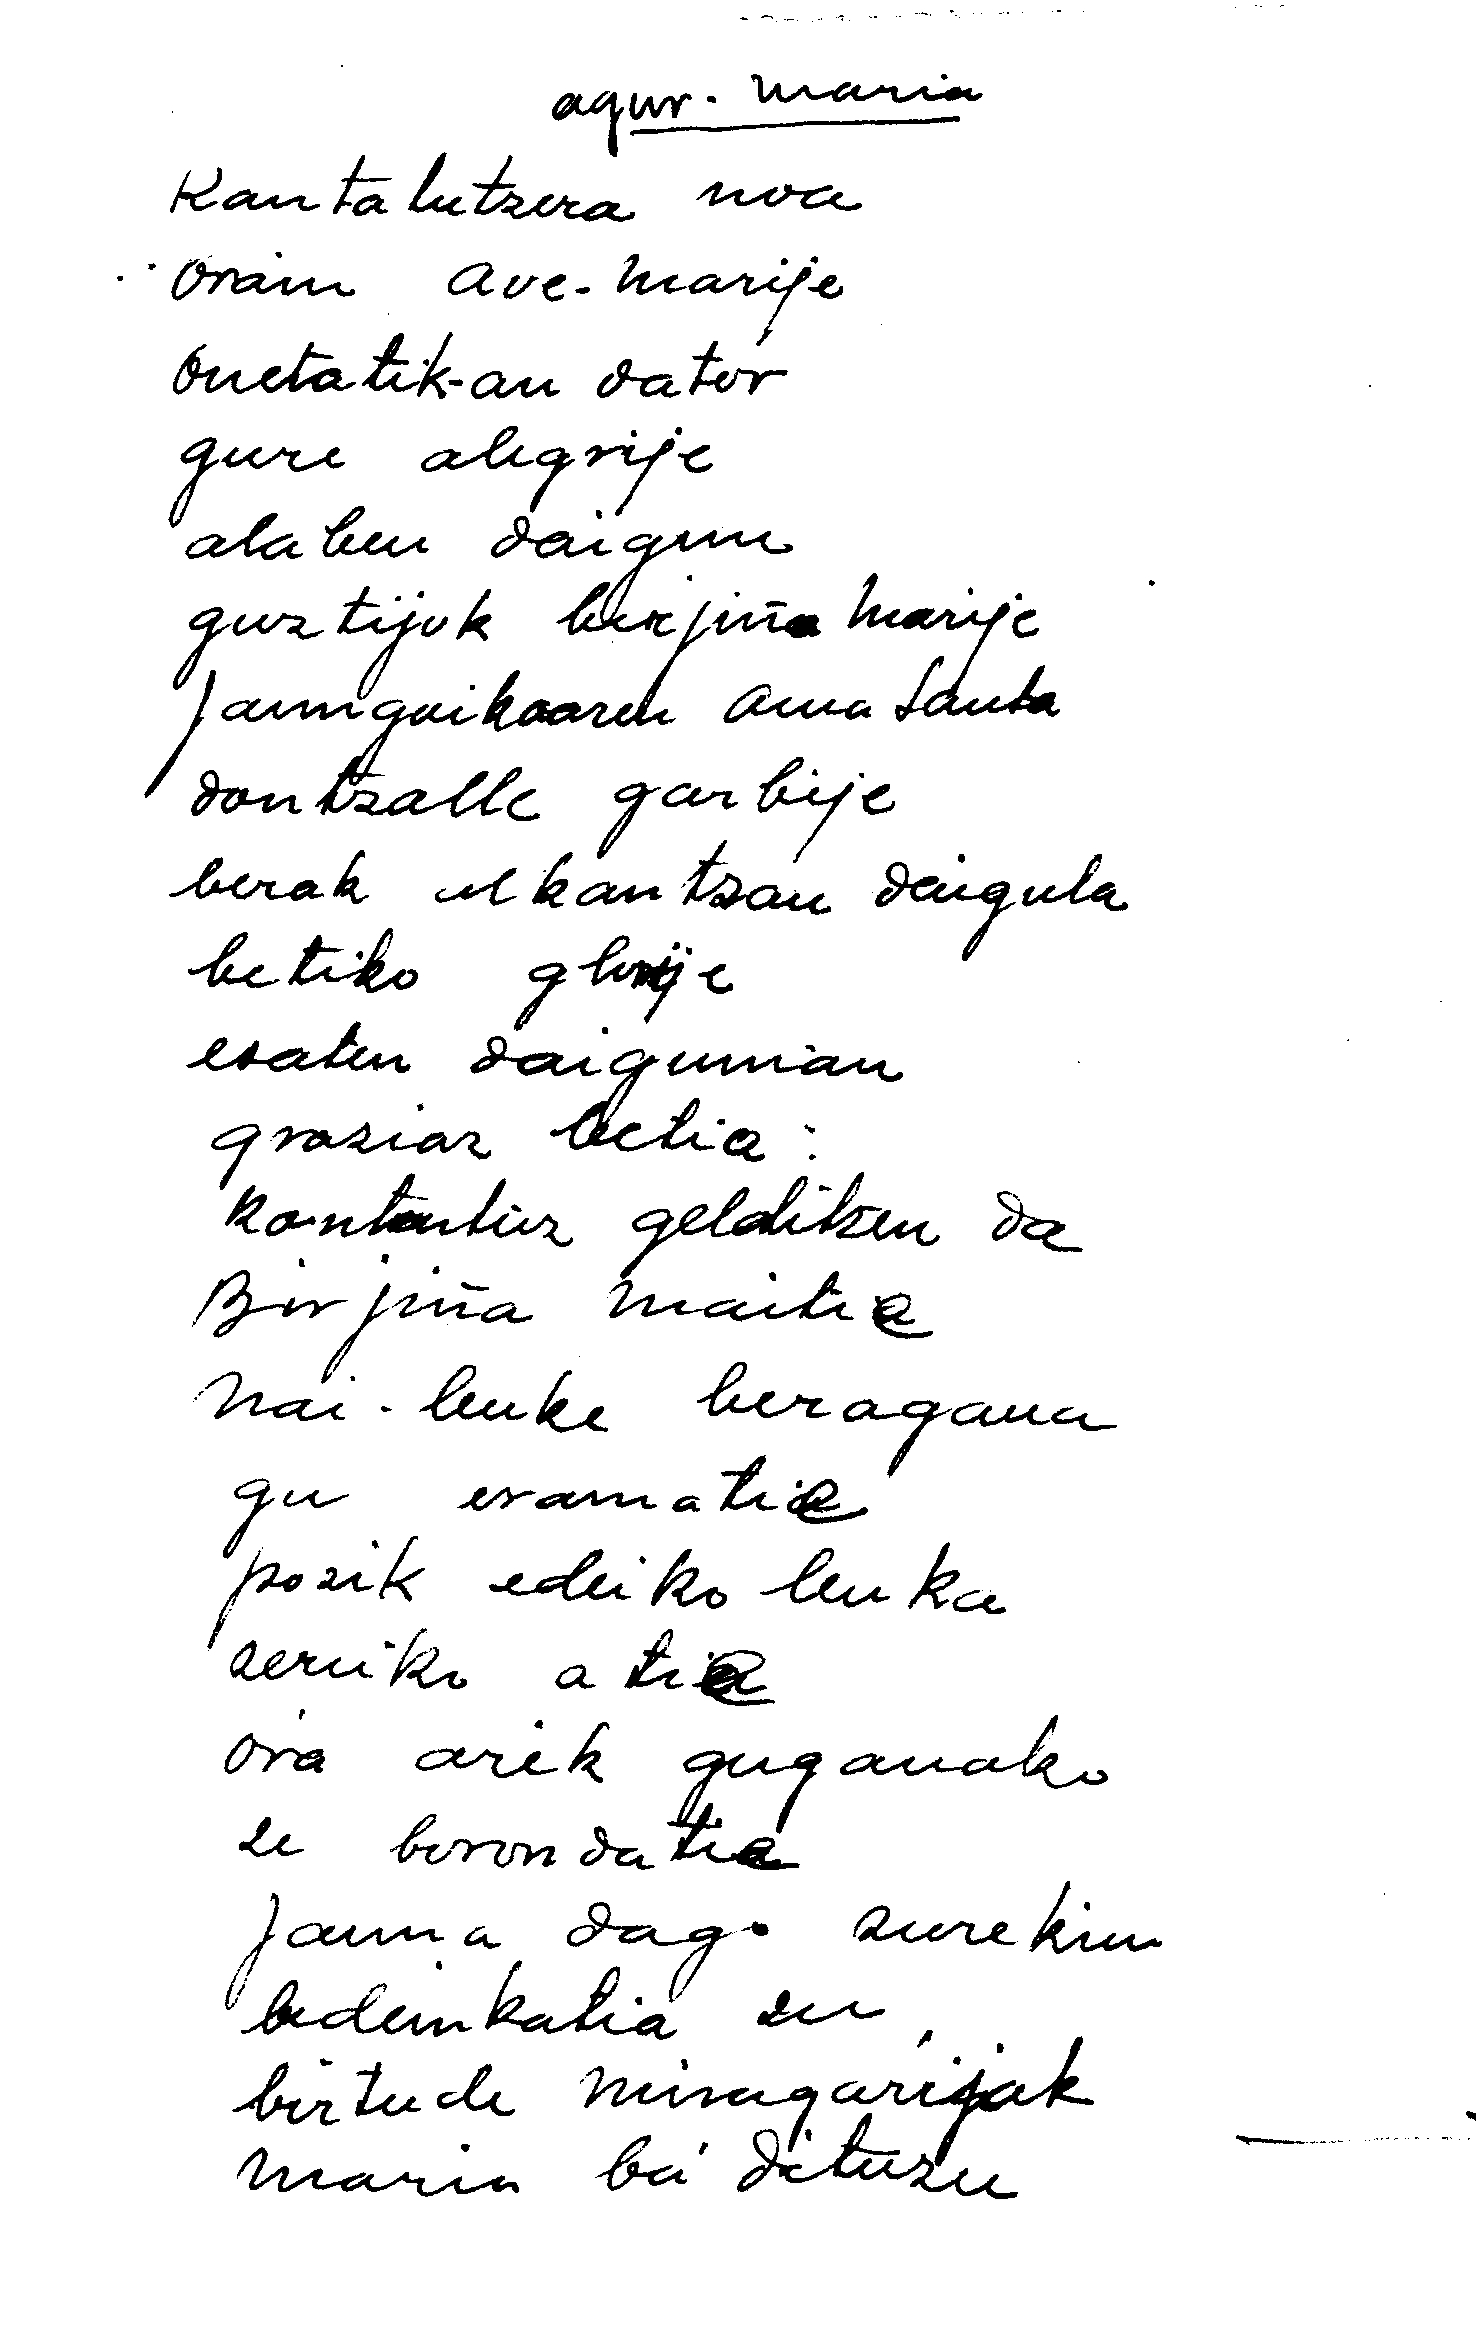 agur. Maria
Kantalutzera noa
orain Ave-Marije
onetatik-an dator
gure alegrije
alaben daigun
guztijok birjiña Marije
Jaungoikoaren Ama Santa
dontzalle garbije
berak alkantzau daigula
betiko glorije
esaten daigunian
graziaz betia:
kontentuz gelditzen da
Birjiña Maitia
Nai-leuke beragana
gu eramatia
pozik ediko leuka
zeruko atia
ora arek guganako
ze borondatia
Jauna dago zurekin
bedeinkatia zu,
birtude miragarijak
Maria ba dituzu